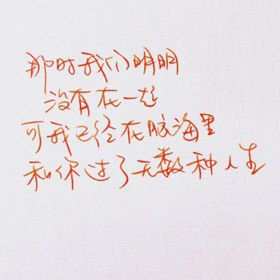 那时我们明明
没有在一起
可我已经在脑海里
和你过了无数种人生